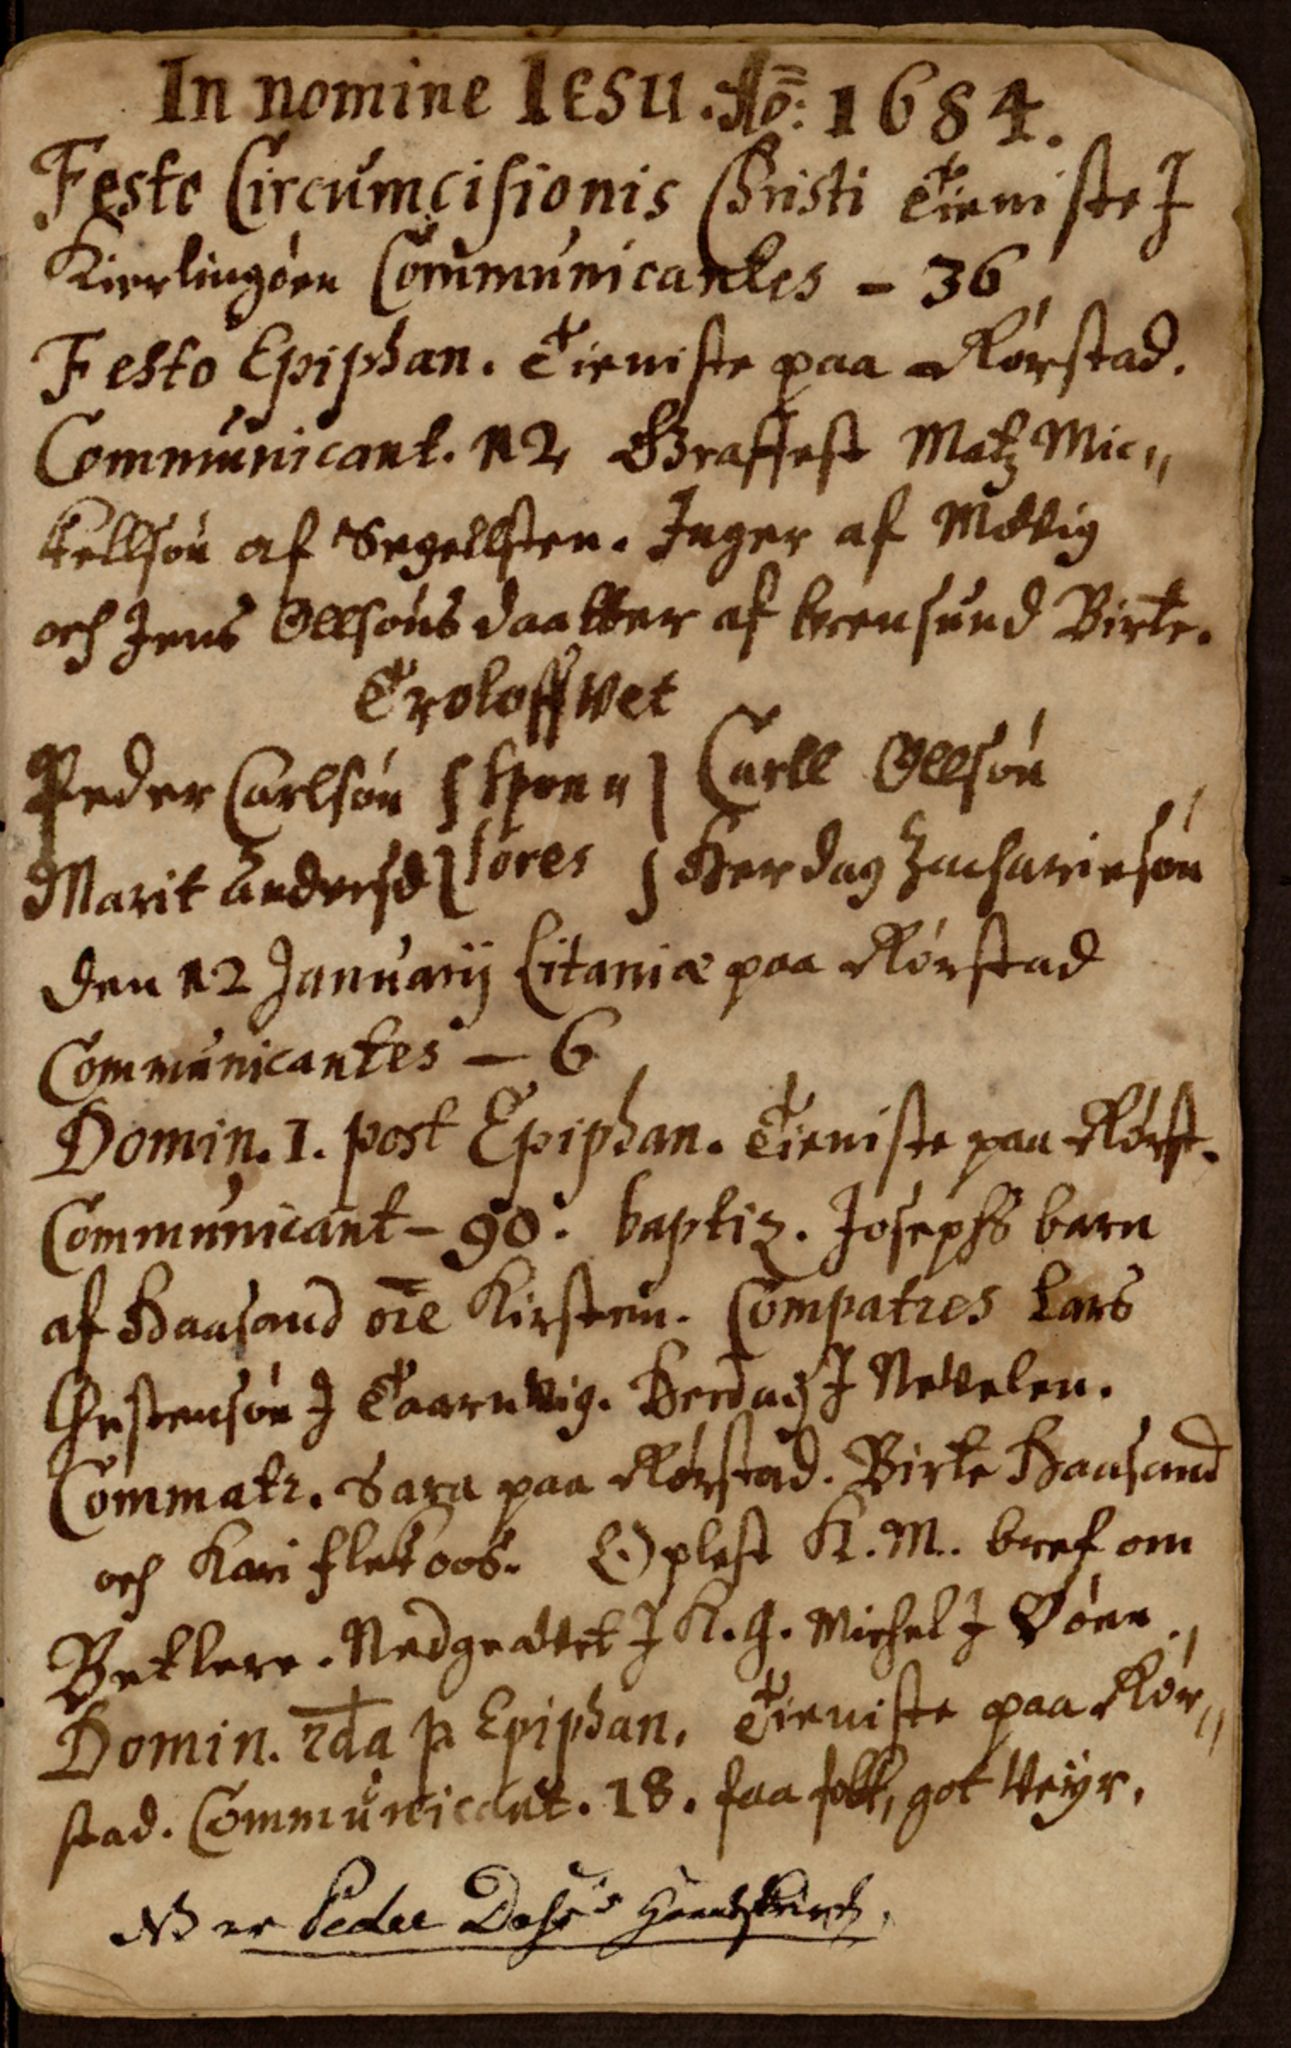 In nomine IESU. Aō: 1684.
Festo Circumcisionis Christi Tieniste J
Kierlingöen Communicantes – 36
Festo Epiphan. Tieniste paa Rörstad.
Communicant. 12 Graffest Matz Mic„
kellsön af Segellsten. Inger af Mövig
och Jens Ollsöns daatter af brensund Birte.
Troloffwet
Peder Carlsön { spon„ } Carll Ollsön
Marit Andersd { sores } Herdag Zachariesön
Den 12 Januarij Litaniæ paa Rörstad
Communicantes – 6
Domin. 1. post Epiphan. Tieniste paa Rörst.
Communicant – 90. baptiz. Josephs barn
af Haasand n̄ōie Kirsten. Compatres Lars
Chrestensön J Taarnvig. Herdag J Nevelen.
Commatr. Sara paa Rörstad. Birte Haasand
och Kari flekoos. Oplest K. M. bref om
Betlere. Nedgradset J K. G. Michel J Vöen.
Domin. 2da p Epiphan. Tieniste paa Rör„
stad. Communicant. 18. faa folk, got Veijr.
NB er Peder Dass's Haandskrivt.